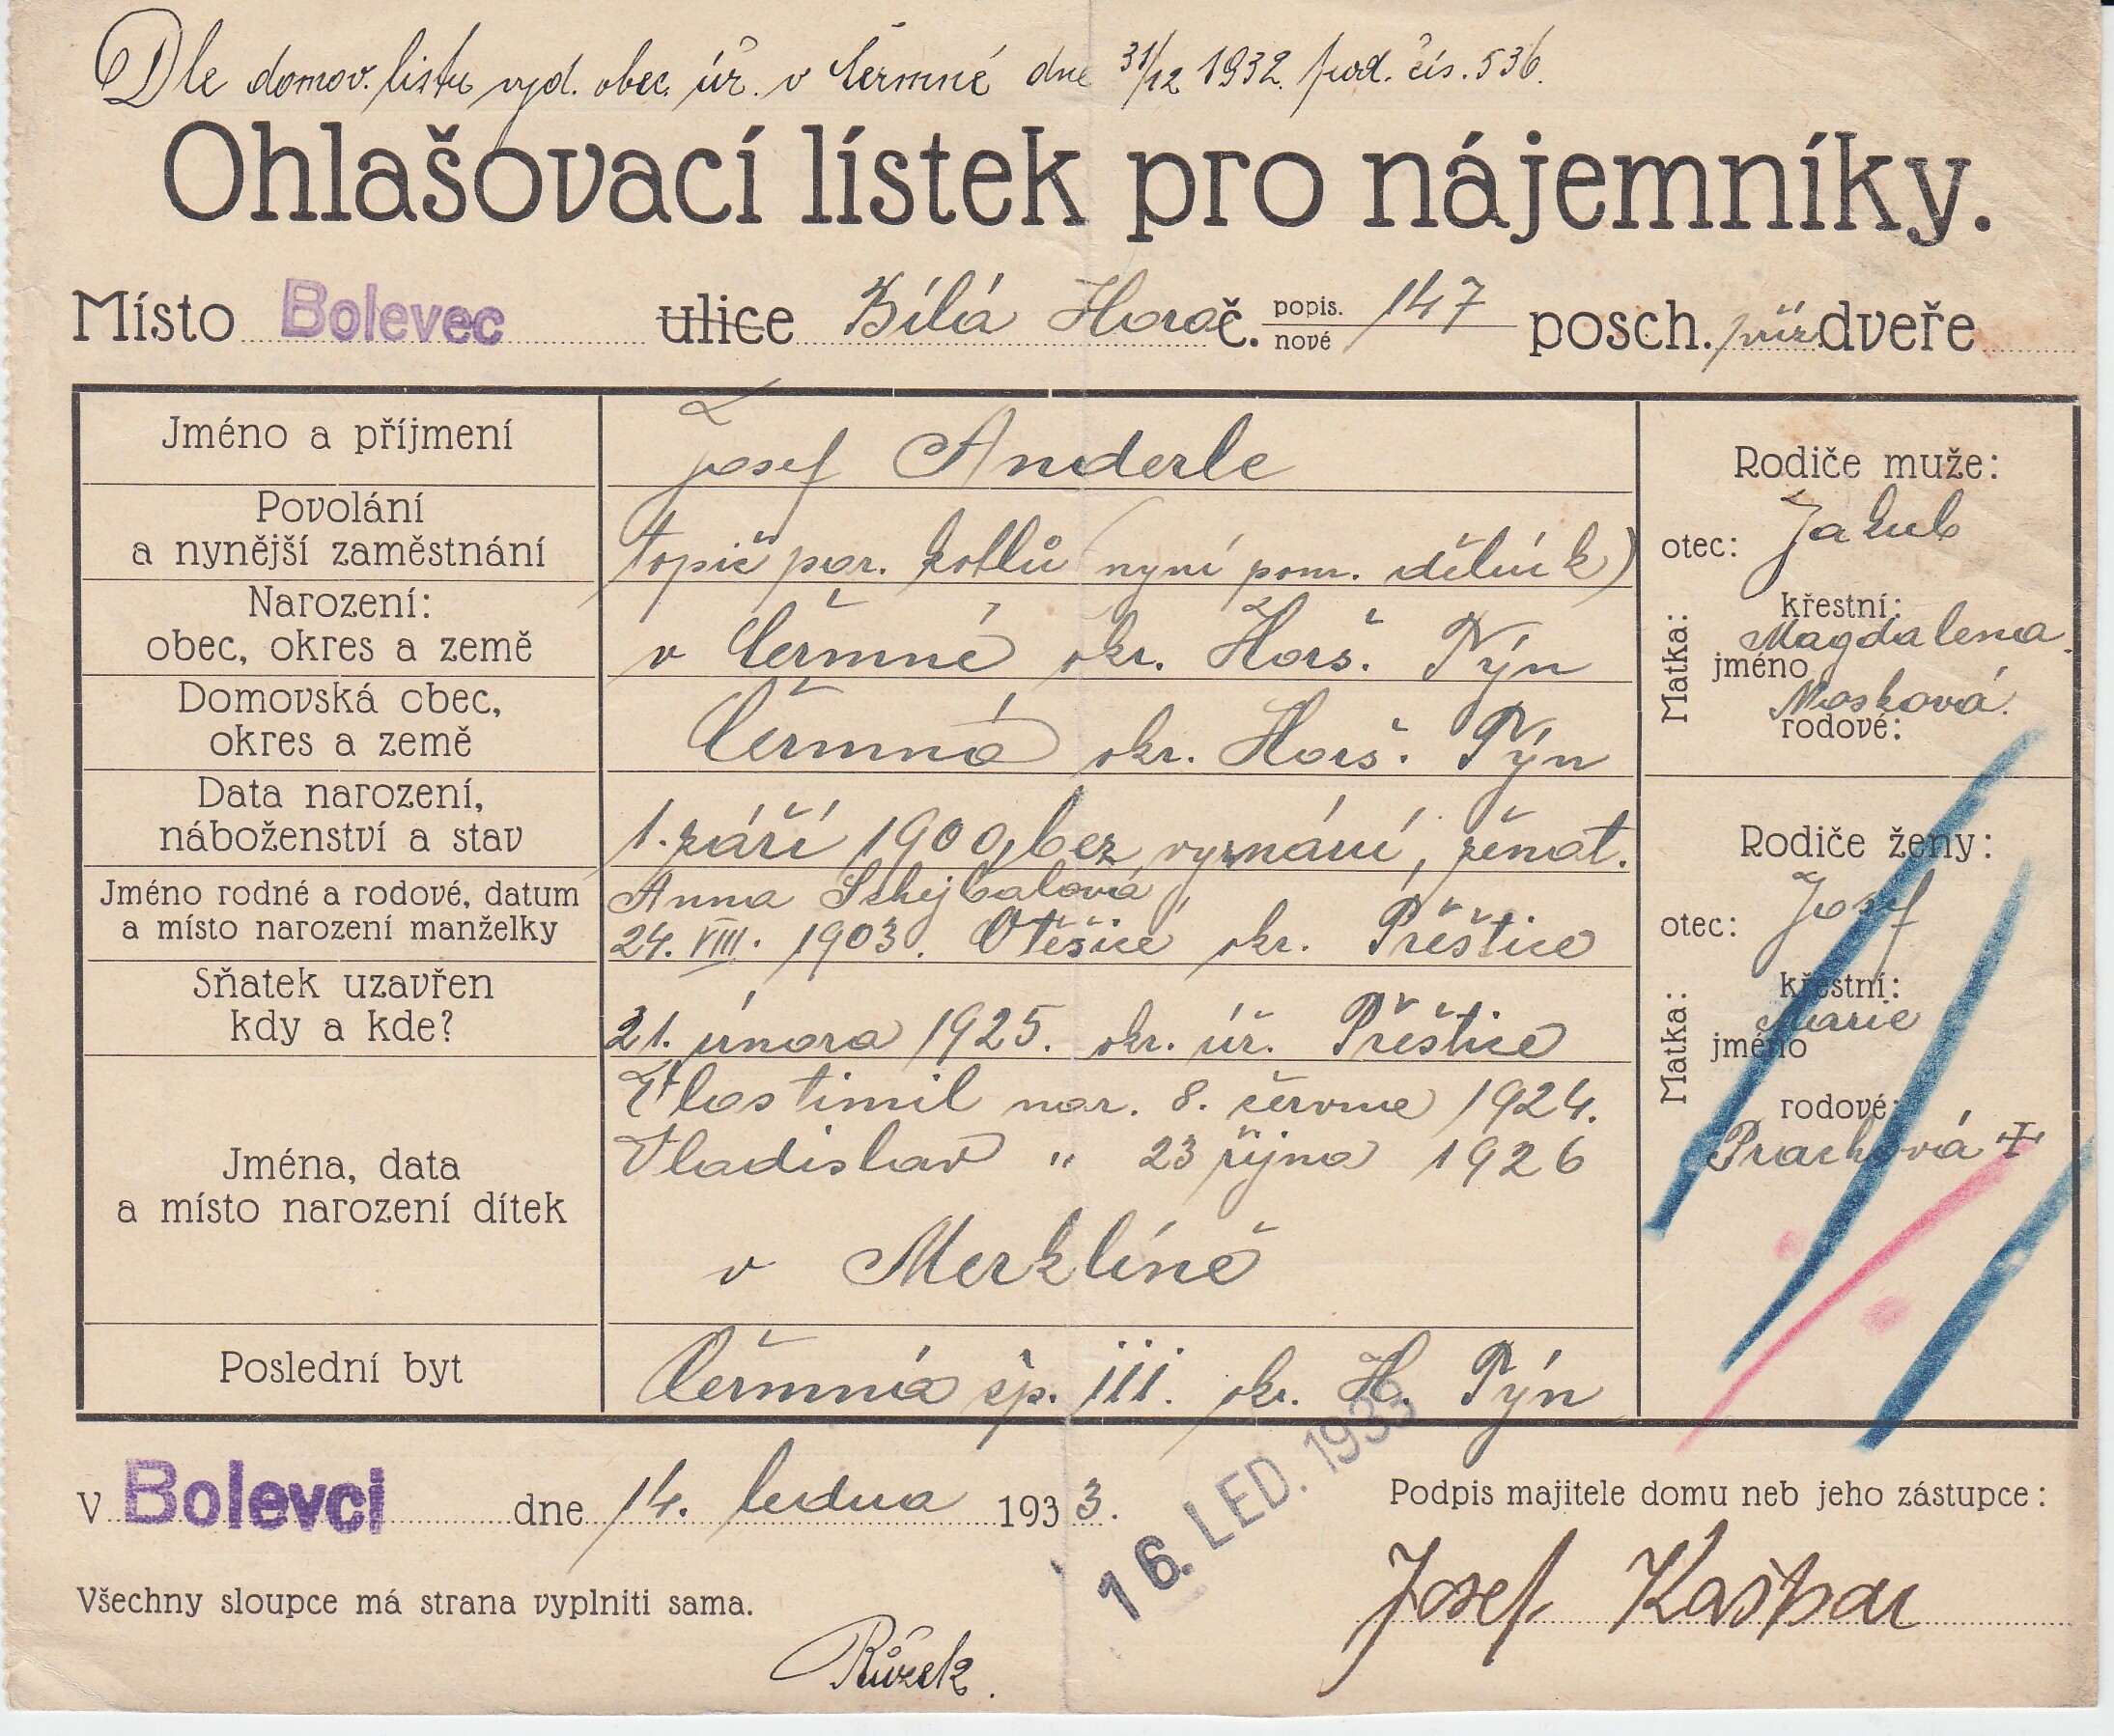 Dle domov. listu vyd. obec. úř. v Čermné dne 31/12 1932 pod. čís. 536.
Ohlašovací lístek pro nájemníky.
Místo Bolevec ulice Bílá Hora č. popis. nové 147 posch. příz. dveře
Jméno a příjmení
Josef Anderle
Povolání
a nynější zaměstnání
topič par. kotlů (nyní pom. dělník)
Narození:
obec, okres a země
v Čermné okr. Horš. Týn
Domovská obec,
okres a země
Čermná okr. Horš. Týn
Data narození,
náboženství a stav
1. září 1900, bez vyznání, ženat.
Jméno rodné a rodové, datum
a místo narození manželky
Anna Schejbalová,
24. VIII. 1903. Otěšice okr. Přeštice
Sňatek uzavřen
kdy a kde?
21. února 1925. okr. úř. Přeštice
Jména, data
a místo narození dítek
Vlastimil nar. 8. června 1924.
Vladislav " 23 října 1926
v Merklíně
Poslední byt
Čermná čp. 111. okr. H. Týn
Rodiče muže:
otec: Jakub
Matka:
křestní:
Magdalena
jméno
Mosková
rodové:
Rodiče ženy:
otec: Josef
Matka:
křestní:
Marie
jméno
rodové:
Prachová
V Bolevci dne 14. ledna 1933.
16. LED. 1933
Podpis majitele domu neb jeho zástupce:
Josef Kašpar
Všechny sloupce má strana vyplniti sama.
Růžek.